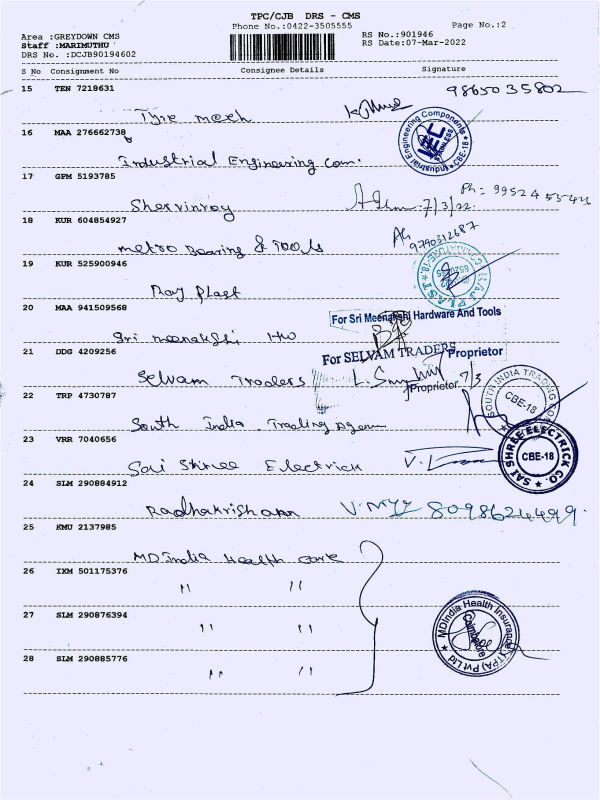 TPC/CJB DRS - CMS
Phone No.:0422-3505555
Page No.:2
Area :GREYDOWN CMS
RS No.:901946
Staff :MARIMUTHU
RS Date:07-Mar-2022
DRS No. :DCJB90194602
S No Consignment No Consignee Details Signature
15 TEN 7218631
9865035802
Tyre mech
16 MAA 276662738
Industrial Engineering Com.
Industrial Engineering Components
IEC
STAINLESS
CBE-18
17 GPM 5193785
Ph: 99524 554
Shervinroy 7/3/22.
18 KUR 604854927
9790312687
metro Bearing & Tools
19 KUR 525900946
Raj Plast
20 MAA 941509568
For Sri Meenakshi Hardware And Tools
Sri meenakshi H/W
Proprietor
21 DDG 4209256
For SELVAM TRADERS
Selvam Traders
Proprietor
7/3
22 TRP 4730787
SOUTH INDIA TRADING
CBE-18
South India Trading Agen
23 VRR 7040656
SAI SHREE ELECTRICK CO.
CBE-18
Sai Shree Electrick
24 SLM 290884912
Radhakrishnan 8098624499.
25 KMU 2137985
MD India Health care
26 IXM 501175376
〃 〃
27 SLM 290876394
〃 〃
MDIndia Health Insurance (TPA) Pvt Ltd
Coimbatore
28 SLM 290885776
〃 〃